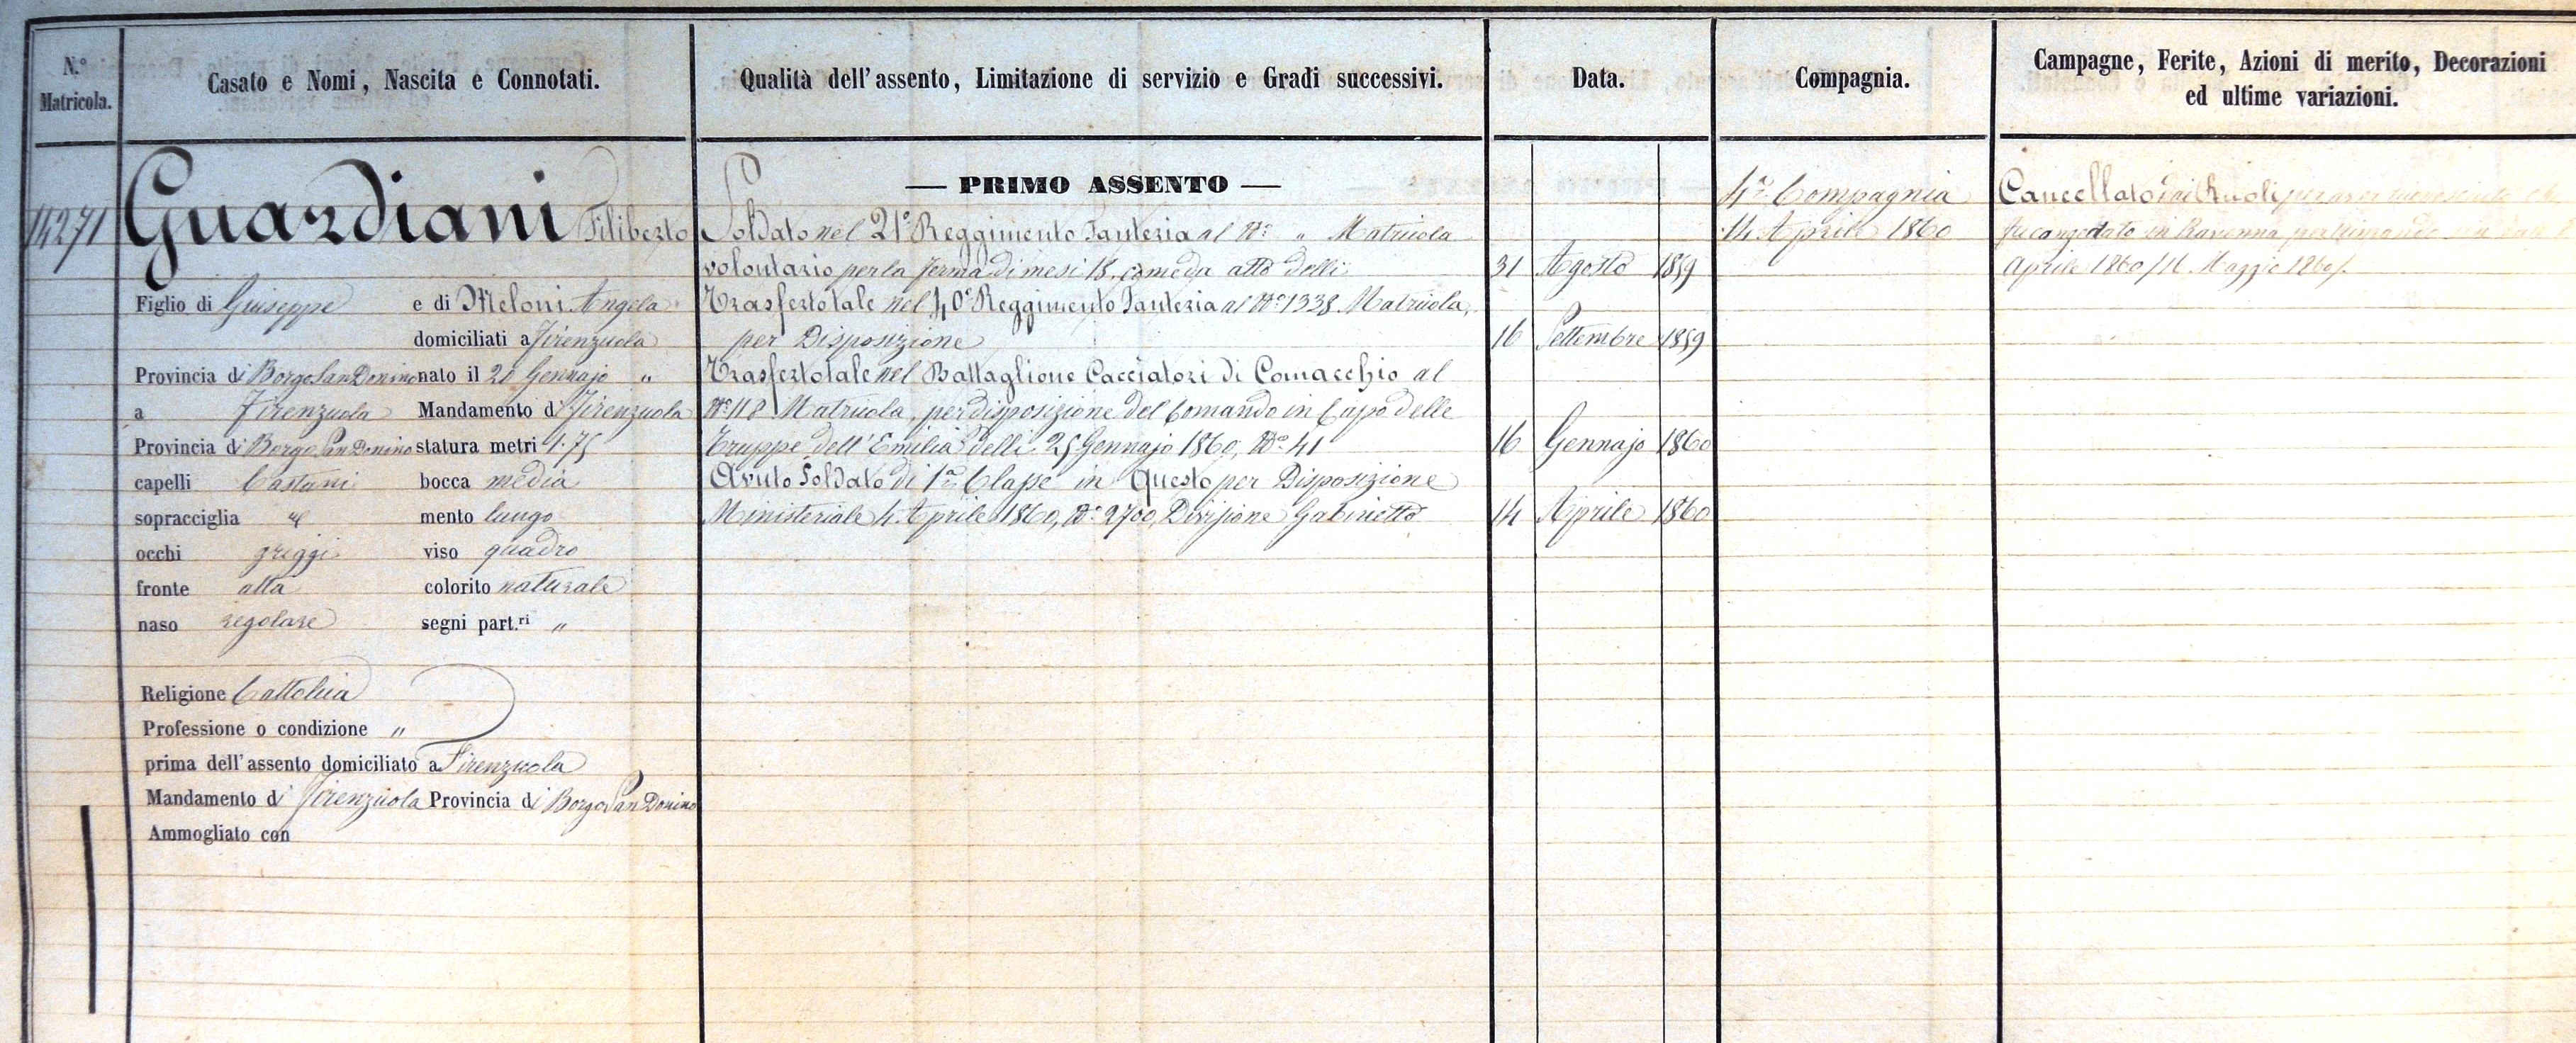 N.° Matricola.
Casato e Nomi, Nascita e Connotati.
Qualità dell'assento, Limitazione di servizio e Gradi successivi.
Data.
Compagnia.
Campagne, Ferite, Azioni di merito, Decorazioni
ed ultime variazioni.
14271
Guardiani Filiberto
Figlio di Giuseppe e di Meloni Angela
domiciliati a Firenzuola
Provincia di Borgo San Donino nato il 20 Gennajo "
a Firenzuola Mandamento di Firenzuola
Provincia di Borgo San Donino statura metri 1.75
capelli Castani bocca media
sopracciglia " mento lungo
occhi griggi viso quadro
fronte alta colorito naturale
naso regolare segni part.ri "
Religione Cattolica
Professione o condizione "
prima dell'assento domiciliato a Firenzuola
Mandamento di Firenzuola Provincia di Borgo San Donino
Ammogliato con
— PRIMO ASSENTO —
Soldato nel 21° Reggimento Fanteria al N° " Matricola
volontario per la ferma di mesi 18, come da atto delli 31 Agosto 1859
Trasferto tale nel 40° Reggimento Fanteria al N° 1338 Matricola,
per Disposizione 16 Settembre 1859
Trasferto tale nel Battaglione Cacciatori di Comacchio al
N° 118 Matricola, per disposizione del Comando in Capo delle
Truppe dell'Emilia delli 25 Gennajo 1860, N° 41 16 Gennajo 1860
Avuto Soldato di 1a Classe in Questo per Disposizione
Ministeriale 4 Aprile 1860, N° 2700, Divisione Gabinetto 14 Aprile 1860
4a Compagnia
14 Aprile 1860
Cancellato dai Ruoli per aver
fu congedato in Ravenna per rimando
Aprile 1860 /16 Maggio 1860/.